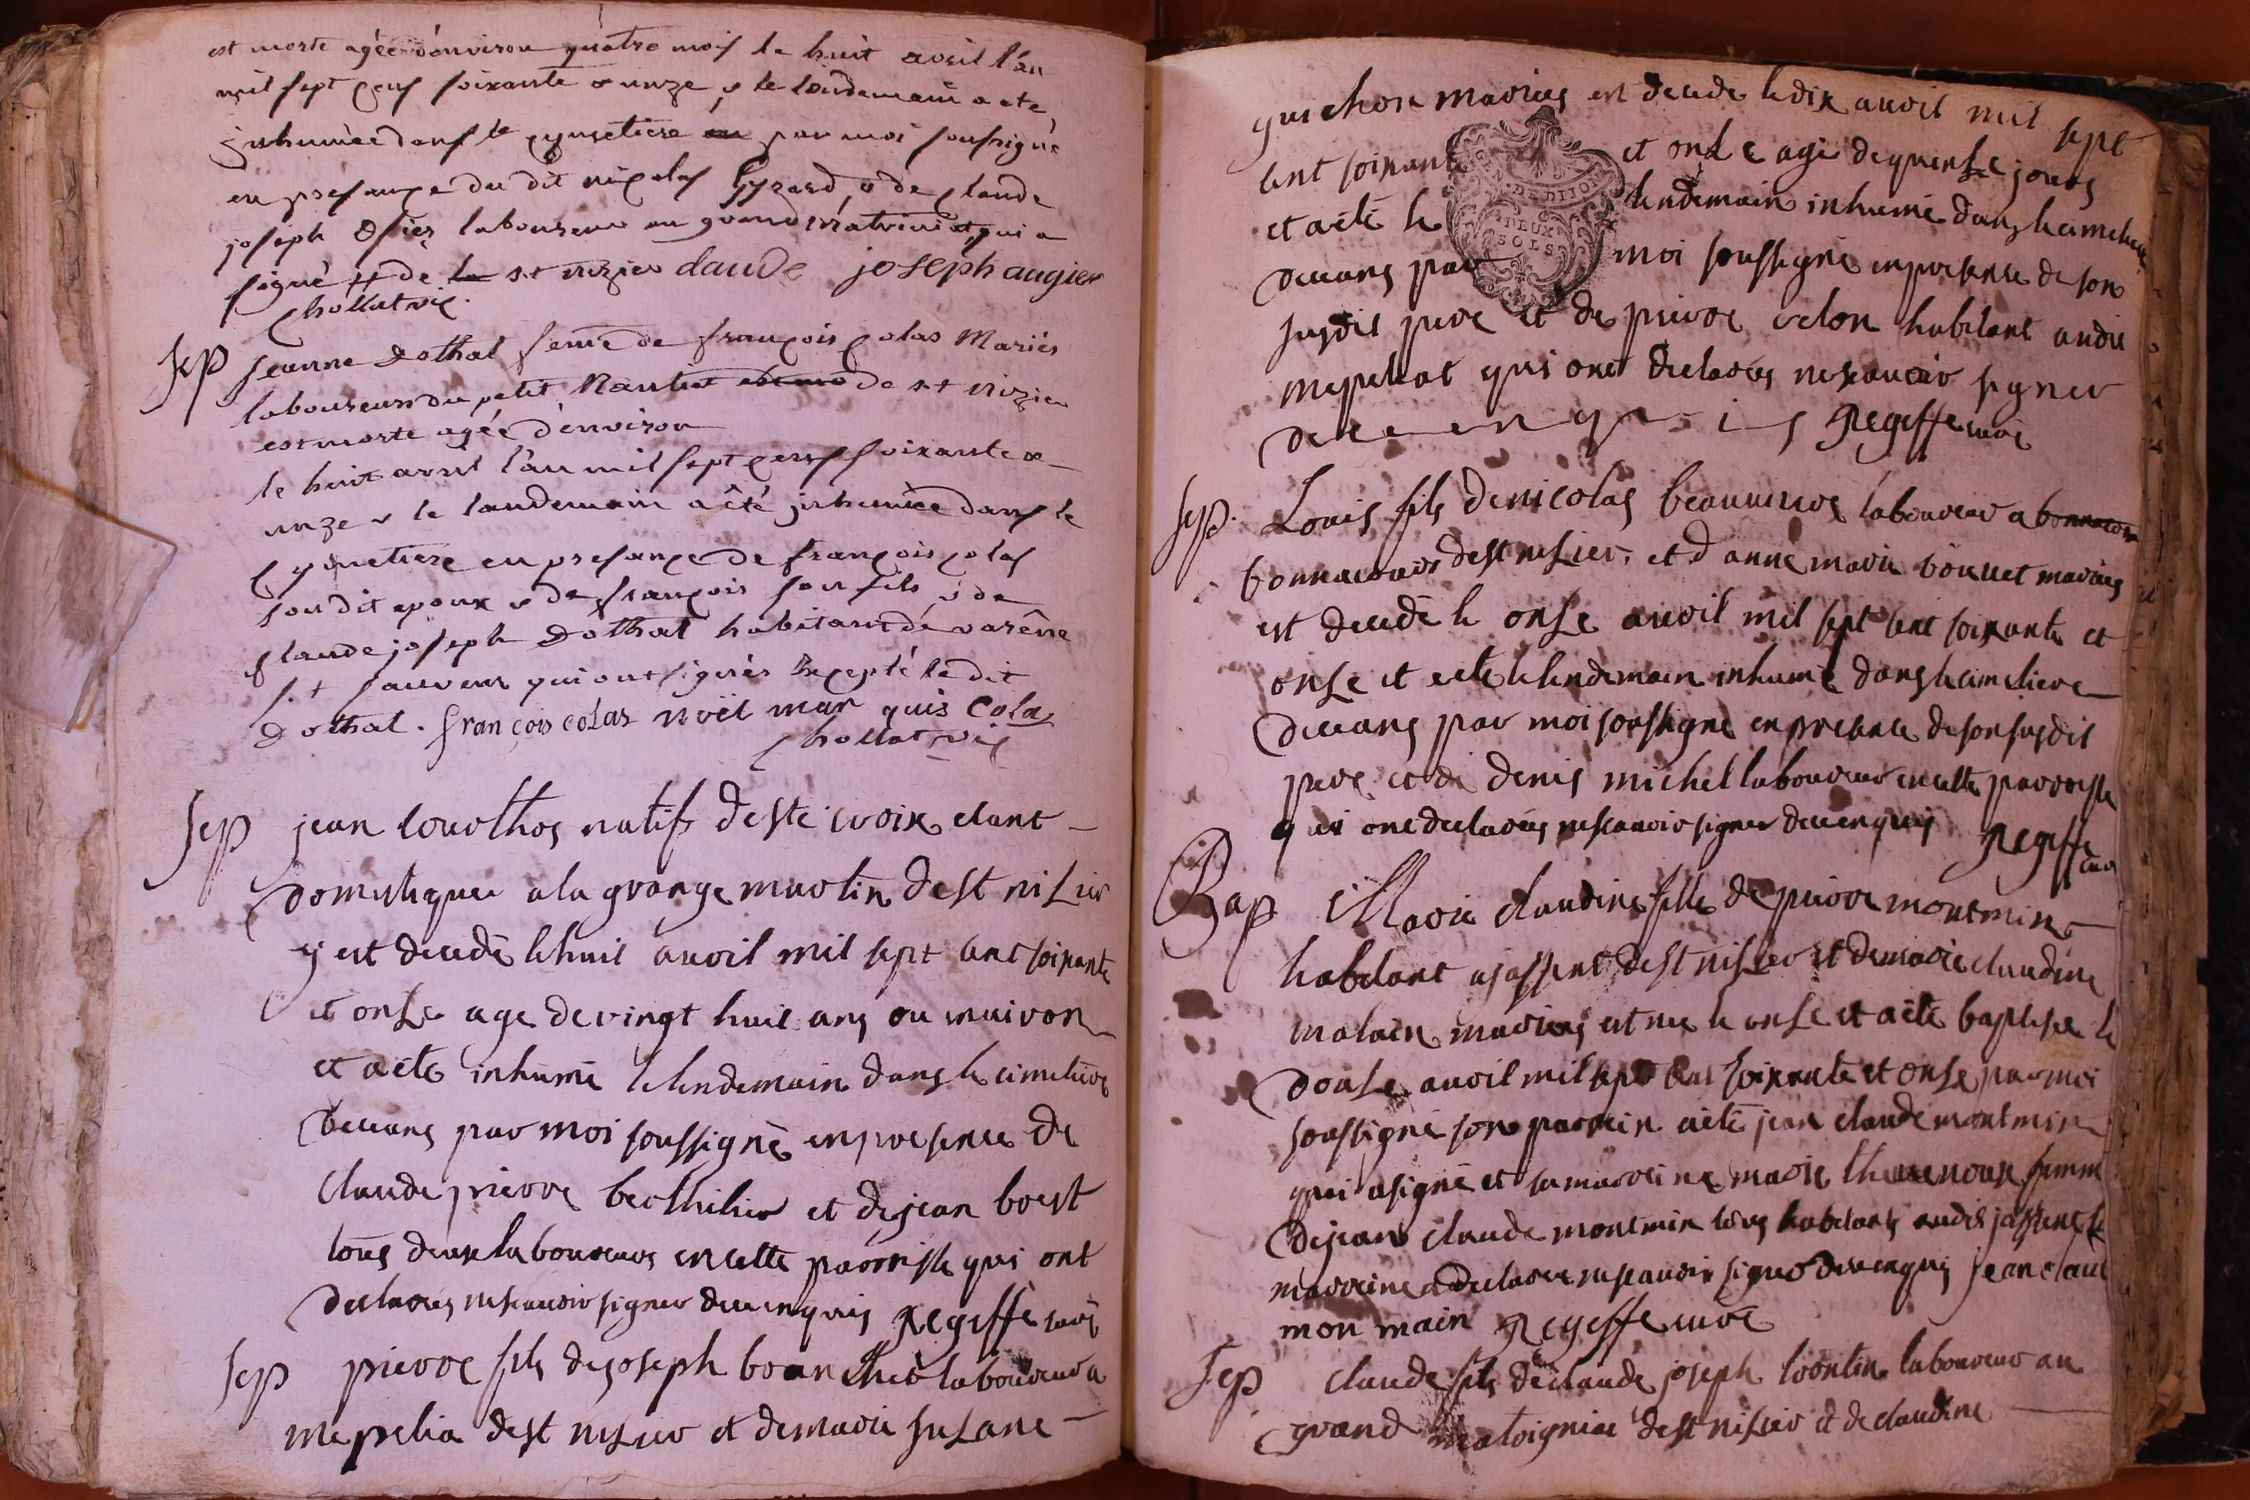 est morte agée d'environ quatre mois le huit avril l'an
mil sept cens soixante & unze, & le lendemain a été
inhumée dans le cymetiere par moi soussigné
en presance du dit nicolas Gyrard, & de claude
joseph Osier laboureur au grand qui a
signé de st nizier claude joseph augier
Chollat vic.
sep jeanne Dothal feme de françois colas Mariés
laboureurs du petit de st nizier
est morte agée d'environ
le huit avril l'an mil sept cens soixante &
unze & le landemain a été inhumée dans le
cymetiere en presance de françois colas
son dit epoux & de françois son fils & de
claude joseph Dothal habitant de varêne
st sauveur qui ont signés excepté le dit
dothal. françois colas noël mar quis Colas
Chollat vic
sep jean courthos natif de ste croix etant
domestique a la grange martin de st nisier
y est decedé le huit avril mil sept cent soixante
et onse age de vingt huit ans ou environ
et a été inhumé le lendemain dans le cimetiere
deceans par moi soussigné en presence de
claude pierre berthilier et de jean boest
tous deux laboureurs en cette parroisse qui ont
declarés ne scavoir signer de ce enquis Regeffe curé
sep pierre fils de joseph branchet laboureur a
mepelia de st nisier et de marie susane
guichon mariés est decedé le dix avril mil sept
cent soixante et onse agé de quense jours
et a été le lendemain inhumé dans le cimetiere
DE DIJON
DEUX
SOLS
deceans par moi soussigné en presence de son
susdit pere et de pierre velon habitant audit
mepeliat qui ont declarés ne scavoir signer
de ce enquis Regeffe curé
sep. Louis fils de nicolas beauvivre laboureur a
bonnacour de st nisier, et d anne marie bouvet mariés
est decedé le onse avril mil sept cent soixante et
onse et a été le lendemain inhumé dans le cimetiere
deceans par moi soussigné en presence de son susdit
pere et de denis michel laboureur en cette parroisse
qui ont declarés ne scavoir signer de ce enquis Regeffe
curé
Bap Marie claudine fille de pierre montmin
habitant a jassent de st nisier et de marie claudine
malain mariés est nee le onse et a été baptisee le
douse avril mil sept cent soixante et onse par moi
soussigné son parrein a été jean claude montmin
qui a signé et sa marreine marie thevenoux femme
de jean claude montmin tous habitants audit jassent la
marreine a declaree ne scavoir signer de ce enquis jean claud
mon main Regeffe curé
sep claude fils de claude joseph trontin laboureur au
grand de st nisier et de claudine